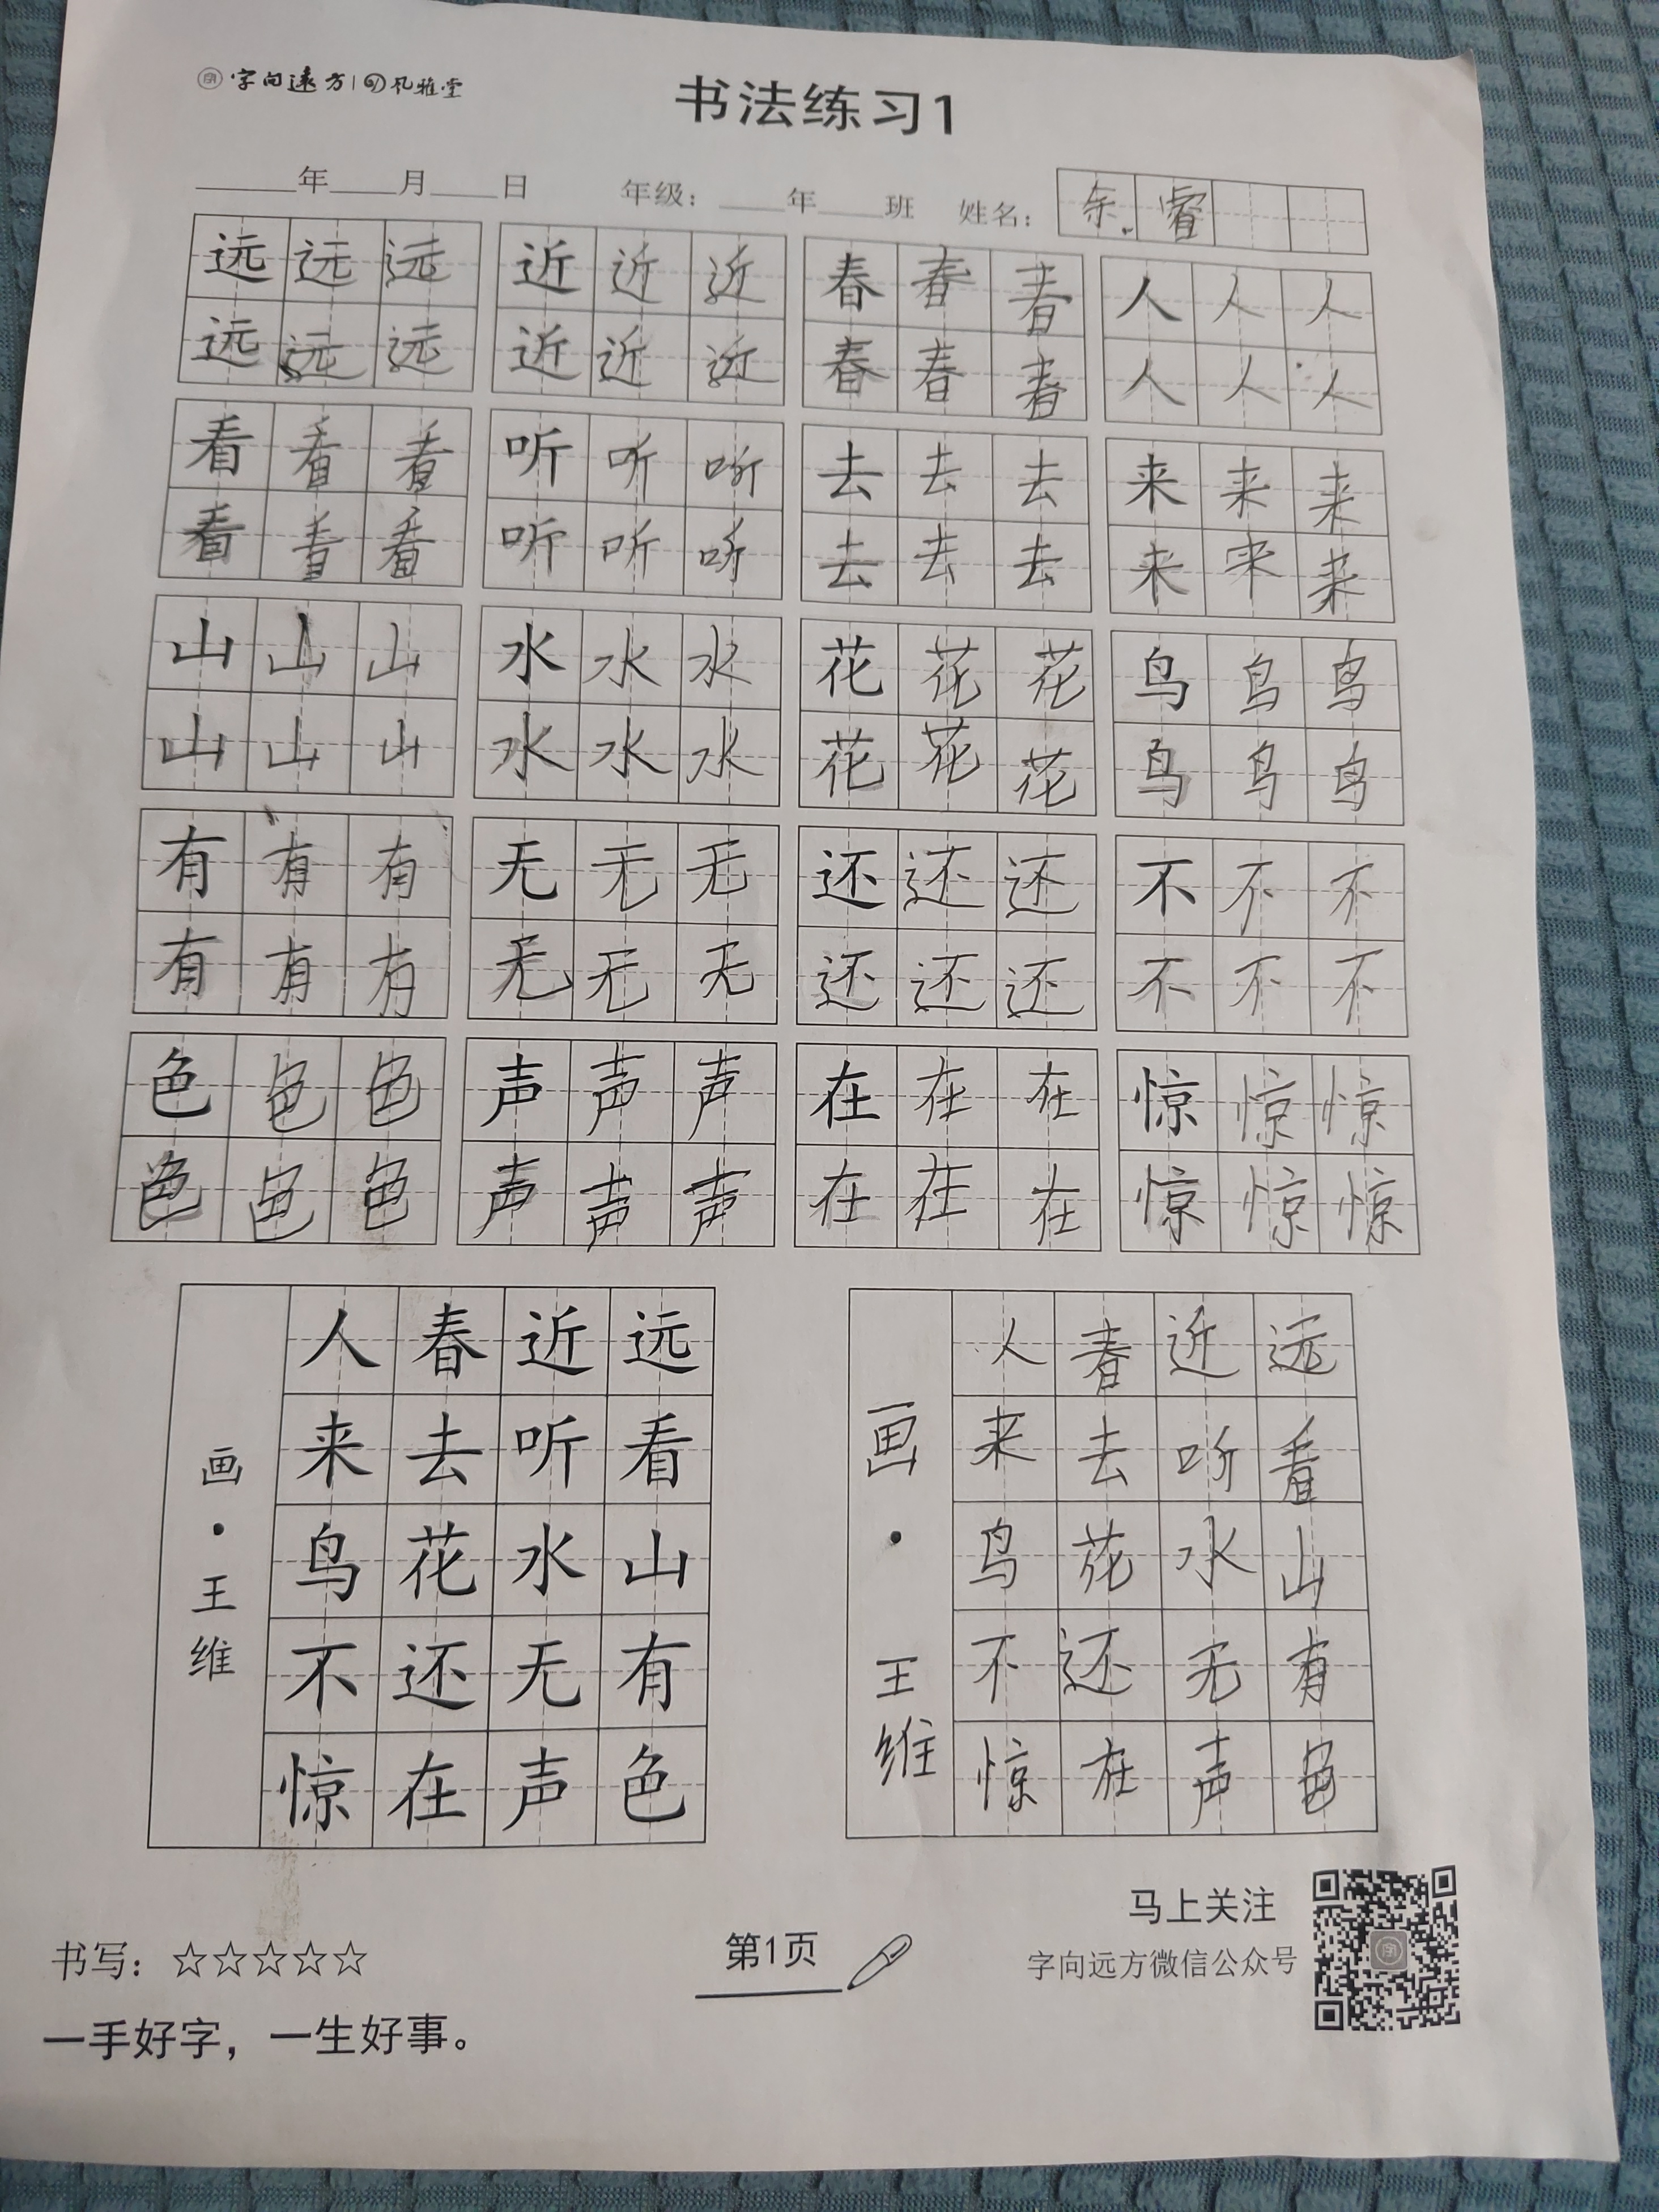 字向远方 风雅堂
书法练习1
年 月 日 年级: 年 班 姓名: 睿
远远远 近近近 春春春 人人人
远远远 近近近 春春春 人人人
看看看 听听听 去去去 来来来
看看看 听听听 去去去 来来来
山山山 水水水 花花花 鸟鸟鸟
山山山 水水水 花花花 鸟鸟鸟
有有有 无无无 还还还 不不不
有有有 无无无 还还还 不不不
色色色 声声声 在在在 惊惊惊
色色色 声声声 在在在 惊惊惊
远看山有色
近听水无声
春去花还在
人来鸟不惊
画·王维
远看山有色
近听水无声
春去花还在
人来鸟不惊
画·王维
书写: ☆☆☆☆☆
一手好字,一生好事。
第1页
马上关注
字向远方微信公众号